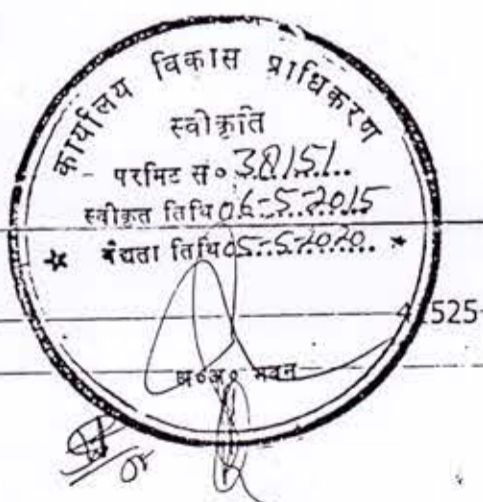 कार्यालय विकास प्राधिकरण
स्वीकृति
परमिट सं० 38151
स्वीकृत तिथि 06-5-2015
वैधता तिथि 05-5-2020
525
भवन